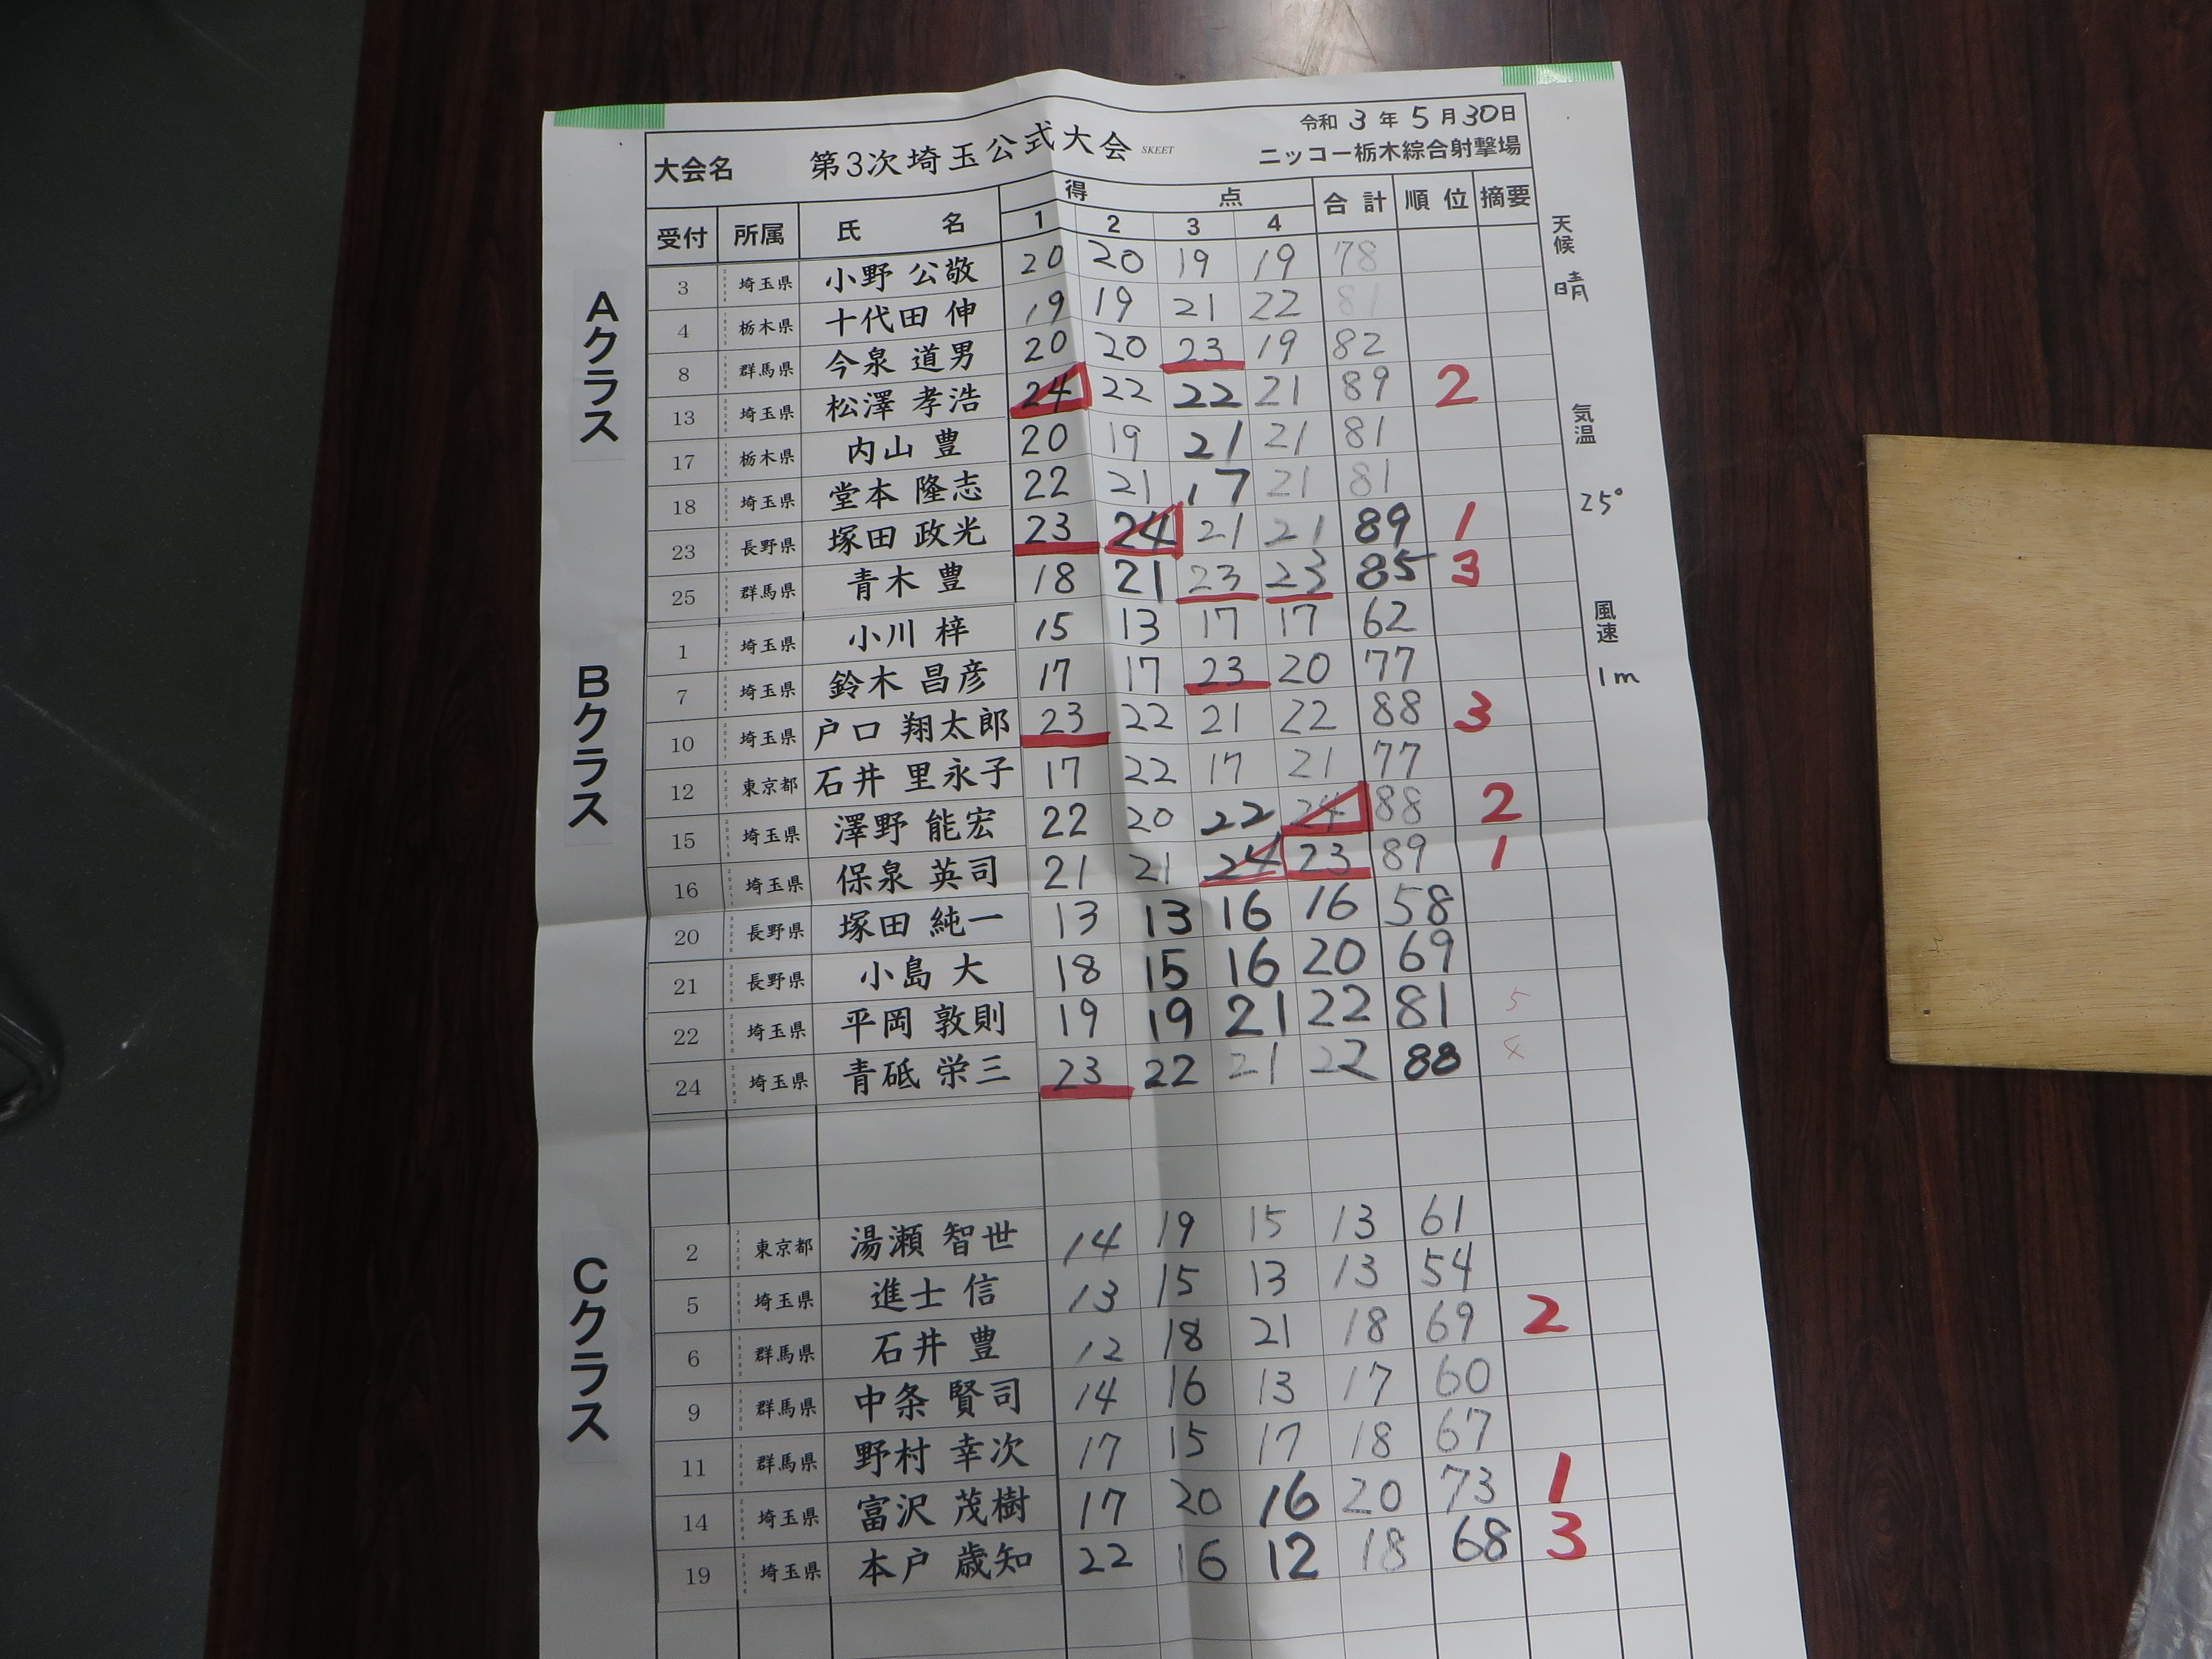 令和 3 年 5 月 30日
大会名 第3次埼玉公式大会 SKEET ニッコー栃木綜合射撃場
受付 所属 氏 名 得 点 合 計 順 位 摘要
1 2 3 4
Aクラス
3 埼玉県 小野 公敬 20 20 19 19 78
4 栃木県 十代田 伸 19 19 21 22 81
8 群馬県 今泉 道男 20 20 23 19 82
13 埼玉県 松澤 孝浩 24 22 22 21 89 2
17 栃木県 内山 豊 20 19 21 21 81
18 埼玉県 堂本 隆志 22 21 17 21 81
23 長野県 塚田 政光 23 24 21 21 89 1
25 群馬県 青木 豊 18 21 23 23 85 3
Bクラス
1 埼玉県 小川 梓 15 13 17 17 62
7 埼玉県 鈴木 昌彦 17 17 23 20 77
10 埼玉県 戸口 翔太郎 23 22 21 22 88 3
12 東京都 石井 里永子 17 22 17 21 77
15 埼玉県 澤野 能宏 22 20 22 24 88 2
16 埼玉県 保泉 英司 21 21 24 23 89 1
20 長野県 塚田 純一 13 13 16 16 58
21 長野県 小島 大 18 15 16 20 69
22 埼玉県 平岡 敦則 19 19 21 22 81 5
24 埼玉県 青砥 栄三 23 22 21 22 88 4
Cクラス
2 東京都 湯瀬 智世 14 19 15 13 61
5 埼玉県 進士 信 13 15 13 13 54
6 群馬県 石井 豊 12 18 21 18 69 2
9 群馬県 中条 賢司 14 16 13 17 60
11 群馬県 野村 幸次 17 15 17 18 67
14 埼玉県 富沢 茂樹 17 20 16 20 73 1
19 埼玉県 本戸 歳知 22 16 12 18 68 3
天候
晴
気温
25°
風速
1m